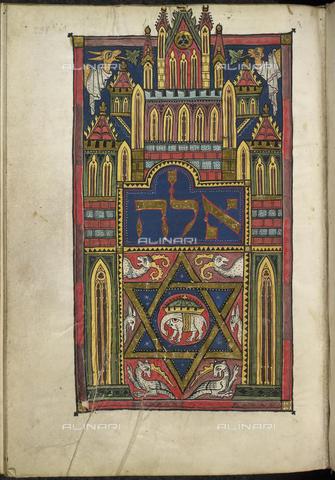 ALINARI
אלה
ALINARI
ALINARI
ALINARI
ALINARI